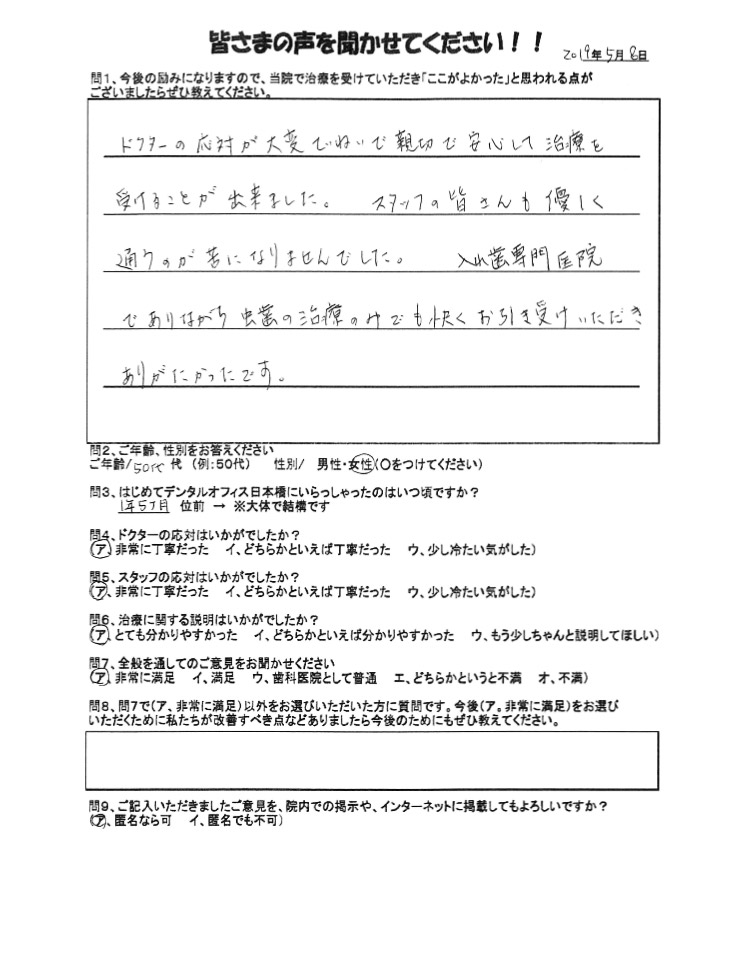 皆さまの声を聞かせてください！！
2019年5月8日
問1、今後の励みになりますので、当院で治療を受けていただき「ここがよかった」と思われる点が
ございましたらぜひ教えてください。
ドクターの応対が大変ていねいで親切で安心して治療を
受けることが出来ました。 スタッフの皆さんも優しく
通うのが苦になりませんでした。 入れ歯専門医院
でありながら虫歯の治療のみでも快くお引き受けいただき
ありがたかったです。
問2、ご年齢、性別をお答えください
ご年齢/50代 代 （例：50代） 性別/ 男性・女性（○をつけてください）
問3、はじめてデンタルオフィス日本橋にいらっしゃったのはいつ頃ですか？
1年5ヶ月 位前 → ※大体で結構です
問4、ドクターの応対はいかがでしたか？
（ア、非常に丁寧だった イ、どちらかといえば丁寧だった ウ、少し冷たい気がした）
問5、スタッフの応対はいかがでしたか？
（ア、非常に丁寧だった イ、どちらかといえば丁寧だった ウ、少し冷たい気がした）
問6、治療に関する説明はいかがでしたか？
（ア、とても分かりやすかった イ、どちらかといえば分かりやすかった ウ、もう少しちゃんと説明してほしい）
問7、全般を通してのご意見をお聞かせください
（ア、非常に満足 イ、満足 ウ、歯科医院として普通 エ、どちらかというと不満 オ、不満）
問8、問7で（ア、非常に満足）以外をお選びいただいた方に質問です。今後（ア。非常に満足）をお選び
いただくために私たちが改善すべき点などありましたら今後のためにもぜひ教えてください。
問9、ご記入いただきましたご意見を、院内での掲示や、インターネットに掲載してもよろしいですか？
（ア、匿名なら可 イ、匿名でも不可）